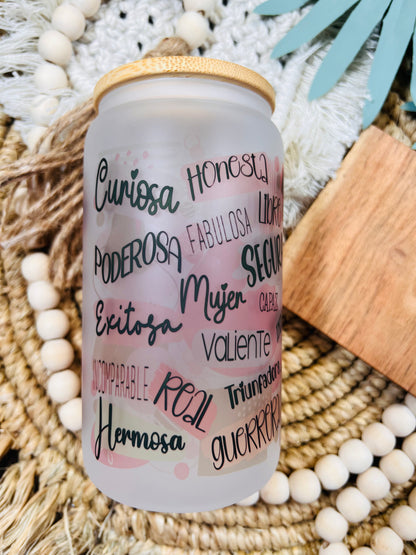 Curiosa
Honesta
LIBRE
PODEROSA
FABULOSA
SEGU
Mujer
CAPAZ
Exitosa
VALIENTE
INCOMPARABLE
REAL
Triunfadora
Hermosa
GUERRERA